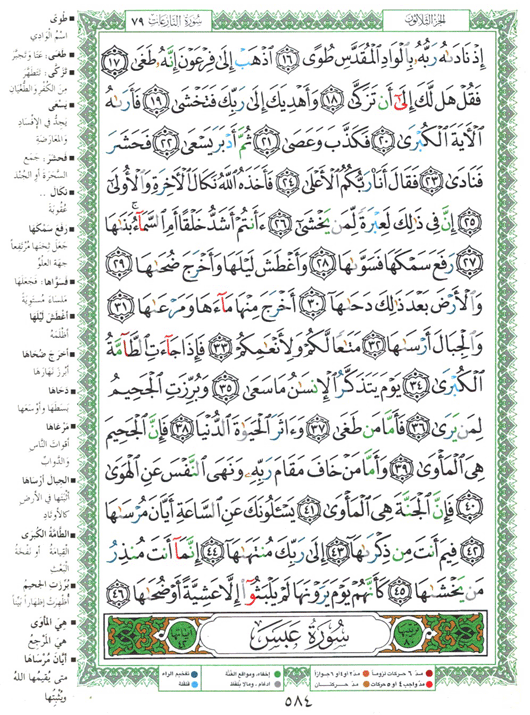 الجزء الثلاثون
سورة النازعات ٧٩
إِذْ نَادَىٰهُ رَبُّهُۥ بِٱلْوَادِ ٱلْمُقَدَّسِ طُوًى ١٦ ٱذْهَبْ إِلَىٰ فِرْعَوْنَ إِنَّهُۥ طَغَىٰ ١٧
فَقُلْ هَل لَّكَ إِلَىٰٓ أَن تَزَكَّىٰ ١٨ وَأَهْدِيَكَ إِلَىٰ رَبِّكَ فَتَخْشَىٰ ١٩ فَأَرَىٰهُ
ٱلْءَايَةَ ٱلْكُبْرَىٰ ٢٠ فَكَذَّبَ وَعَصَىٰ ٢١ ثُمَّ أَدْبَرَ يَسْعَىٰ ٢٢ فَحَشَرَ
فَنَادَىٰ ٢٣ فَقَالَ أَنَا۠ رَبُّكُمُ ٱلْأَعْلَىٰ ٢٤ فَأَخَذَهُ ٱللَّهُ نَكَالَ ٱلْءَاخِرَةِ وَٱلْأُولَىٰٓ
٢٥ إِنَّ فِى ذَٰلِكَ لَعِبْرَةً لِّمَن يَخْشَىٰٓ ٢٦ ءَأَنتُمْ أَشَدُّ خَلْقًا أَمِ ٱلسَّمَآءُ ۚ بَنَىٰهَا
٢٧ رَفَعَ سَمْكَهَا فَسَوَّىٰهَا ٢٨ وَأَغْطَشَ لَيْلَهَا وَأَخْرَجَ ضُحَىٰهَا ٢٩
وَٱلْأَرْضَ بَعْدَ ذَٰلِكَ دَحَىٰهَآ ٣٠ أَخْرَجَ مِنْهَا مَآءَهَا وَمَرْعَىٰهَا ٣١
وَٱلْجِبَالَ أَرْسَىٰهَا ٣٢ مَتَٰعًا لَّكُمْ وَلِأَنْعَٰمِكُمْ ٣٣ فَإِذَا جَآءَتِ ٱلطَّآمَّةُ
ٱلْكُبْرَىٰ ٣٤ يَوْمَ يَتَذَكَّرُ ٱلْإِنسَٰنُ مَا سَعَىٰ ٣٥ وَبُرِّزَتِ ٱلْجَحِيمُ
لِمَن يَرَىٰ ٣٦ فَأَمَّا مَن طَغَىٰ ٣٧ وَءَاثَرَ ٱلْحَيَوٰةَ ٱلدُّنْيَا ٣٨ فَإِنَّ ٱلْجَحِيمَ
هِىَ ٱلْمَأْوَىٰ ٣٩ وَأَمَّا مَنْ خَافَ مَقَامَ رَبِّهِۦ وَنَهَى ٱلنَّفْسَ عَنِ ٱلْهَوَىٰ
٤٠ فَإِنَّ ٱلْجَنَّةَ هِىَ ٱلْمَأْوَىٰ ٤١ يَسْـَٔلُونَكَ عَنِ ٱلسَّاعَةِ أَيَّانَ مُرْسَىٰهَا
٤٢ فِيمَ أَنتَ مِن ذِكْرَىٰهَآ ٤٣ إِلَىٰ رَبِّكَ مُنتَهَىٰهَآ ٤٤ إِنَّمَآ أَنتَ مُنذِرُ
مَن يَخْشَىٰهَا ٤٥ كَأَنَّهُمْ يَوْمَ يَرَوْنَهَا لَمْ يَلْبَثُوٓا۟ إِلَّا عَشِيَّةً أَوْ ضُحَىٰهَا ٤٦
سُورَةُ عَبَسَ
■ طُوًى
اسْمُ الْوَادِي
■ طَغَى: عَتَا وَتَجَبَّرَ
■ تَزَكَّى: تَتَطَهَّرَ
مِنَ الْكُفْرِ وَالطُّغْيَانِ
■ يَسْعَى
يَجِدُّ فِي الإِفْسَادِ
وَالْمُعَارَضَةِ
■ فَحَشَرَ: جَمَعَ
السَّحَرَةَ أَوِ الْجُنْدَ
■ نَكَالَ ..
عُقُوبَةَ
■ رَفَعَ سَمْكَهَا
جَعَلَ ثِخَنَهَا مُرْتَفِعاً
جِهَةَ الْعُلُوِّ
■ فَسَوَّاهَا: فَجَعَلَهَا
مَلْسَاءَ مُسْتَوِيَةً
■ أَغْطَشَ لَيْلَهَا
أَظْلَمَهُ
■ أَخْرَجَ ضُحَاهَا
أَبْرَزَ نَهَارَهَا
■ دَحَاهَا
بَسَطَهَا وَأَوْسَعَهَا
■ مَرْعَاهَا
أَقْوَاتَ النَّاسِ
وَالدَّوَابِّ
■ الْجِبَالَ أَرْسَاهَا
أَثْبَتَهَا فِي الأَرْضِ
كَالأَوْتَادِ
■ الطَّامَّةُ الْكُبْرَى
الْقِيَامَةُ أَوْ نَفْخَةُ
الْبَعْثِ
■ بُرِّزَتِ الْجَحِيمُ
أُظْهِرَتْ إِظْهَاراً بَيِّناً
■ هِيَ الْمَأْوَى
هِيَ الْمَرْجِعُ
■ أَيَّانَ مُرْسَاهَا
مَتَى يُقِيمُهَا اللهُ
وَيُثْبِتُهَا
مدّ ٦ حركات لزوماً مدّ ٢ أو ٤ أو ٦ جوازاً إخفاء، ومواقع الغُنَّة تفخيم الراء
مدّ واجب ٤ أو ٥ حركات مدّ حركتان إدغام، وما لا يُلفظ قلقلة
٥٨٤